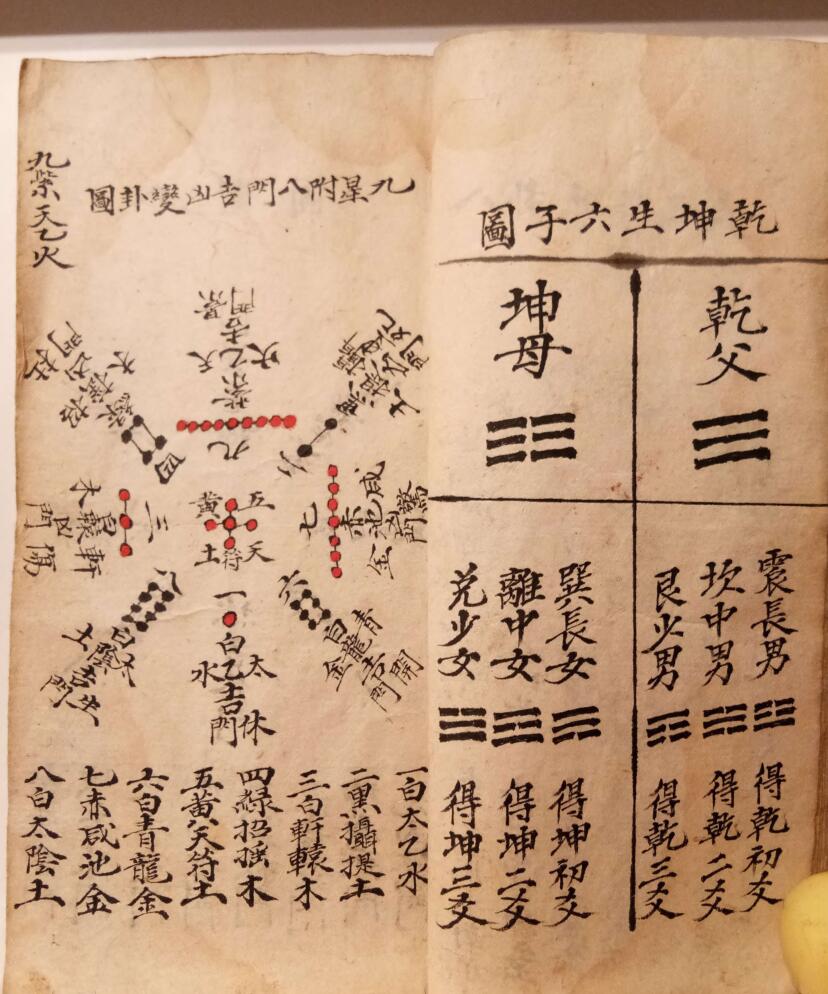 乾坤生六子圖
乾父
坤母
震長男
坎中男
艮少男
得乾初爻
得乾二爻
得乾三爻
巽長女
離中女
兑少女
得坤初爻
得坤二爻
得坤三爻
九星附八門吉凶變卦圖
九
紫
天乙火
吉
景門
二
四
三
七
赤
咸池
金
驚門
五
黃
天符
土
八
六
白
青龍
金
吉
開門
一
白
太乙
水
吉
休門
一白太乙水
二黑攝提土
三白軒轅木
四綠招摇木
五黃天符土
六白青龍金
七赤咸池金
八白太陰土
九紫天乙火